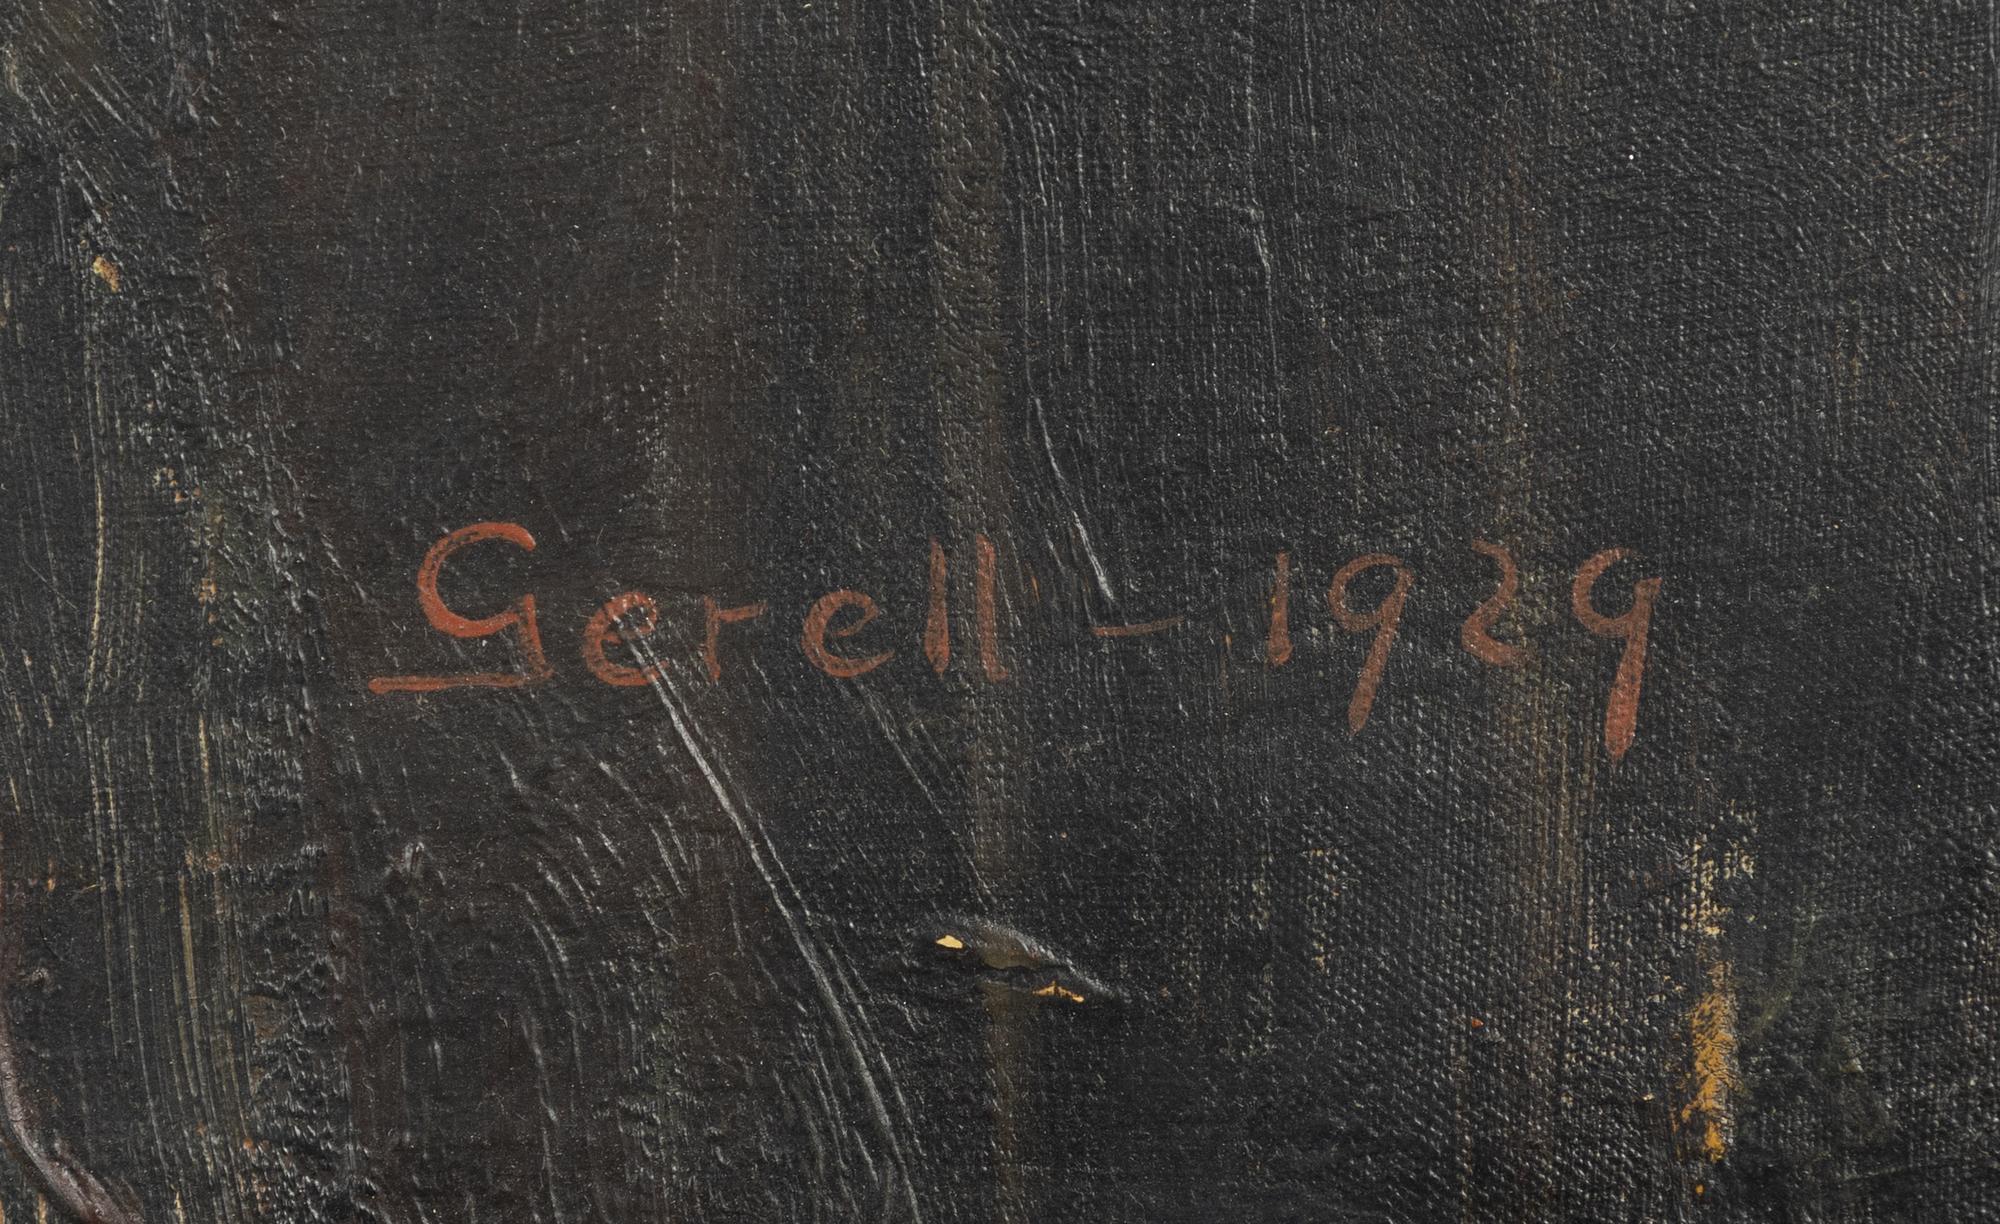 Gerell – 1929